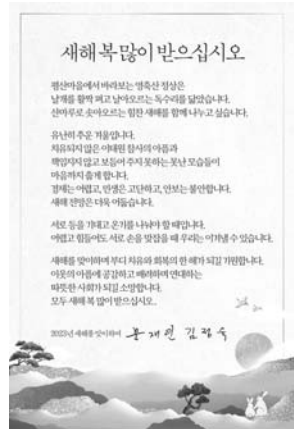 새해 복 많이 받으십시오
평산마을에서 바라보는 영축산 정상은
날개를 활짝 펴고 날아오르는 독수리를 닮았습니다.
산마루로 솟아오르는 힘찬 새해를 함께 나누고 싶습니다.
유난히 추운 겨울입니다.
치유되지 않은 이태원 참사의 아픔과
책임지지 않고 보듬어 주지 못하는 못난 모습들이
마음까지 춥게 합니다.
경제는 어렵고, 민생은 고단하고, 안보는 불안합니다.
새해 전망은 더욱 어둡습니다.
서로 등을 기대고 온기를 나눠야 할 때입니다.
어렵고 힘들어도 서로 손을 맞잡을 때 우리는 이겨낼 수 있습니다.
새해를 맞이하며 부디 치유와 회복의 한 해가 되길 기원합니다.
이웃의 아픔에 공감하고 배려하며 연대하는
따뜻한 사회가 되길 소망합니다.
모두 새해 복 많이 받으십시오.
2023년 새해를 맞이하며 문재인 김정숙